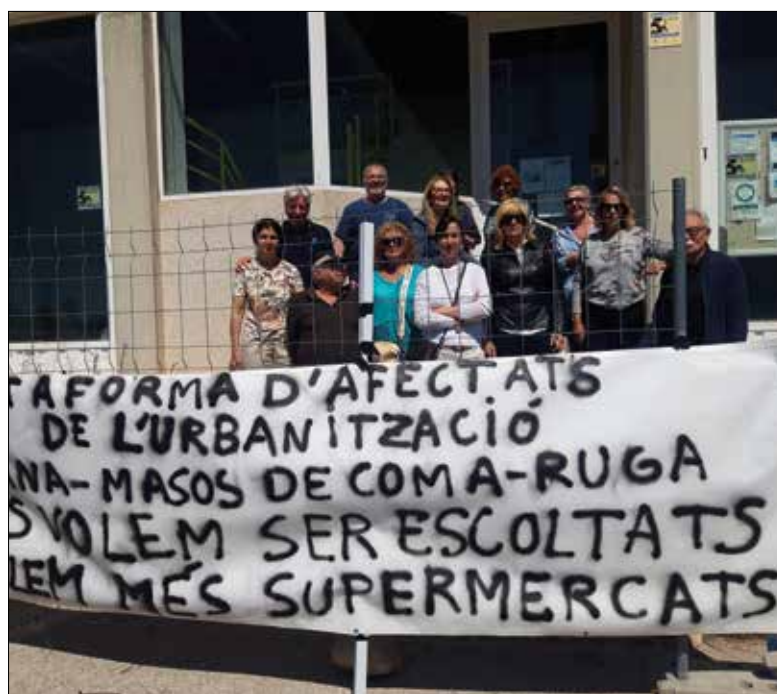 TAFORMA D'AFECTATS
DE L'URBANiTZACIÓ
ANA-MASOS DE COMA-RUGA
S VOLEM SER ESCOLTATS
LEM MÉS SUPERMERCATS